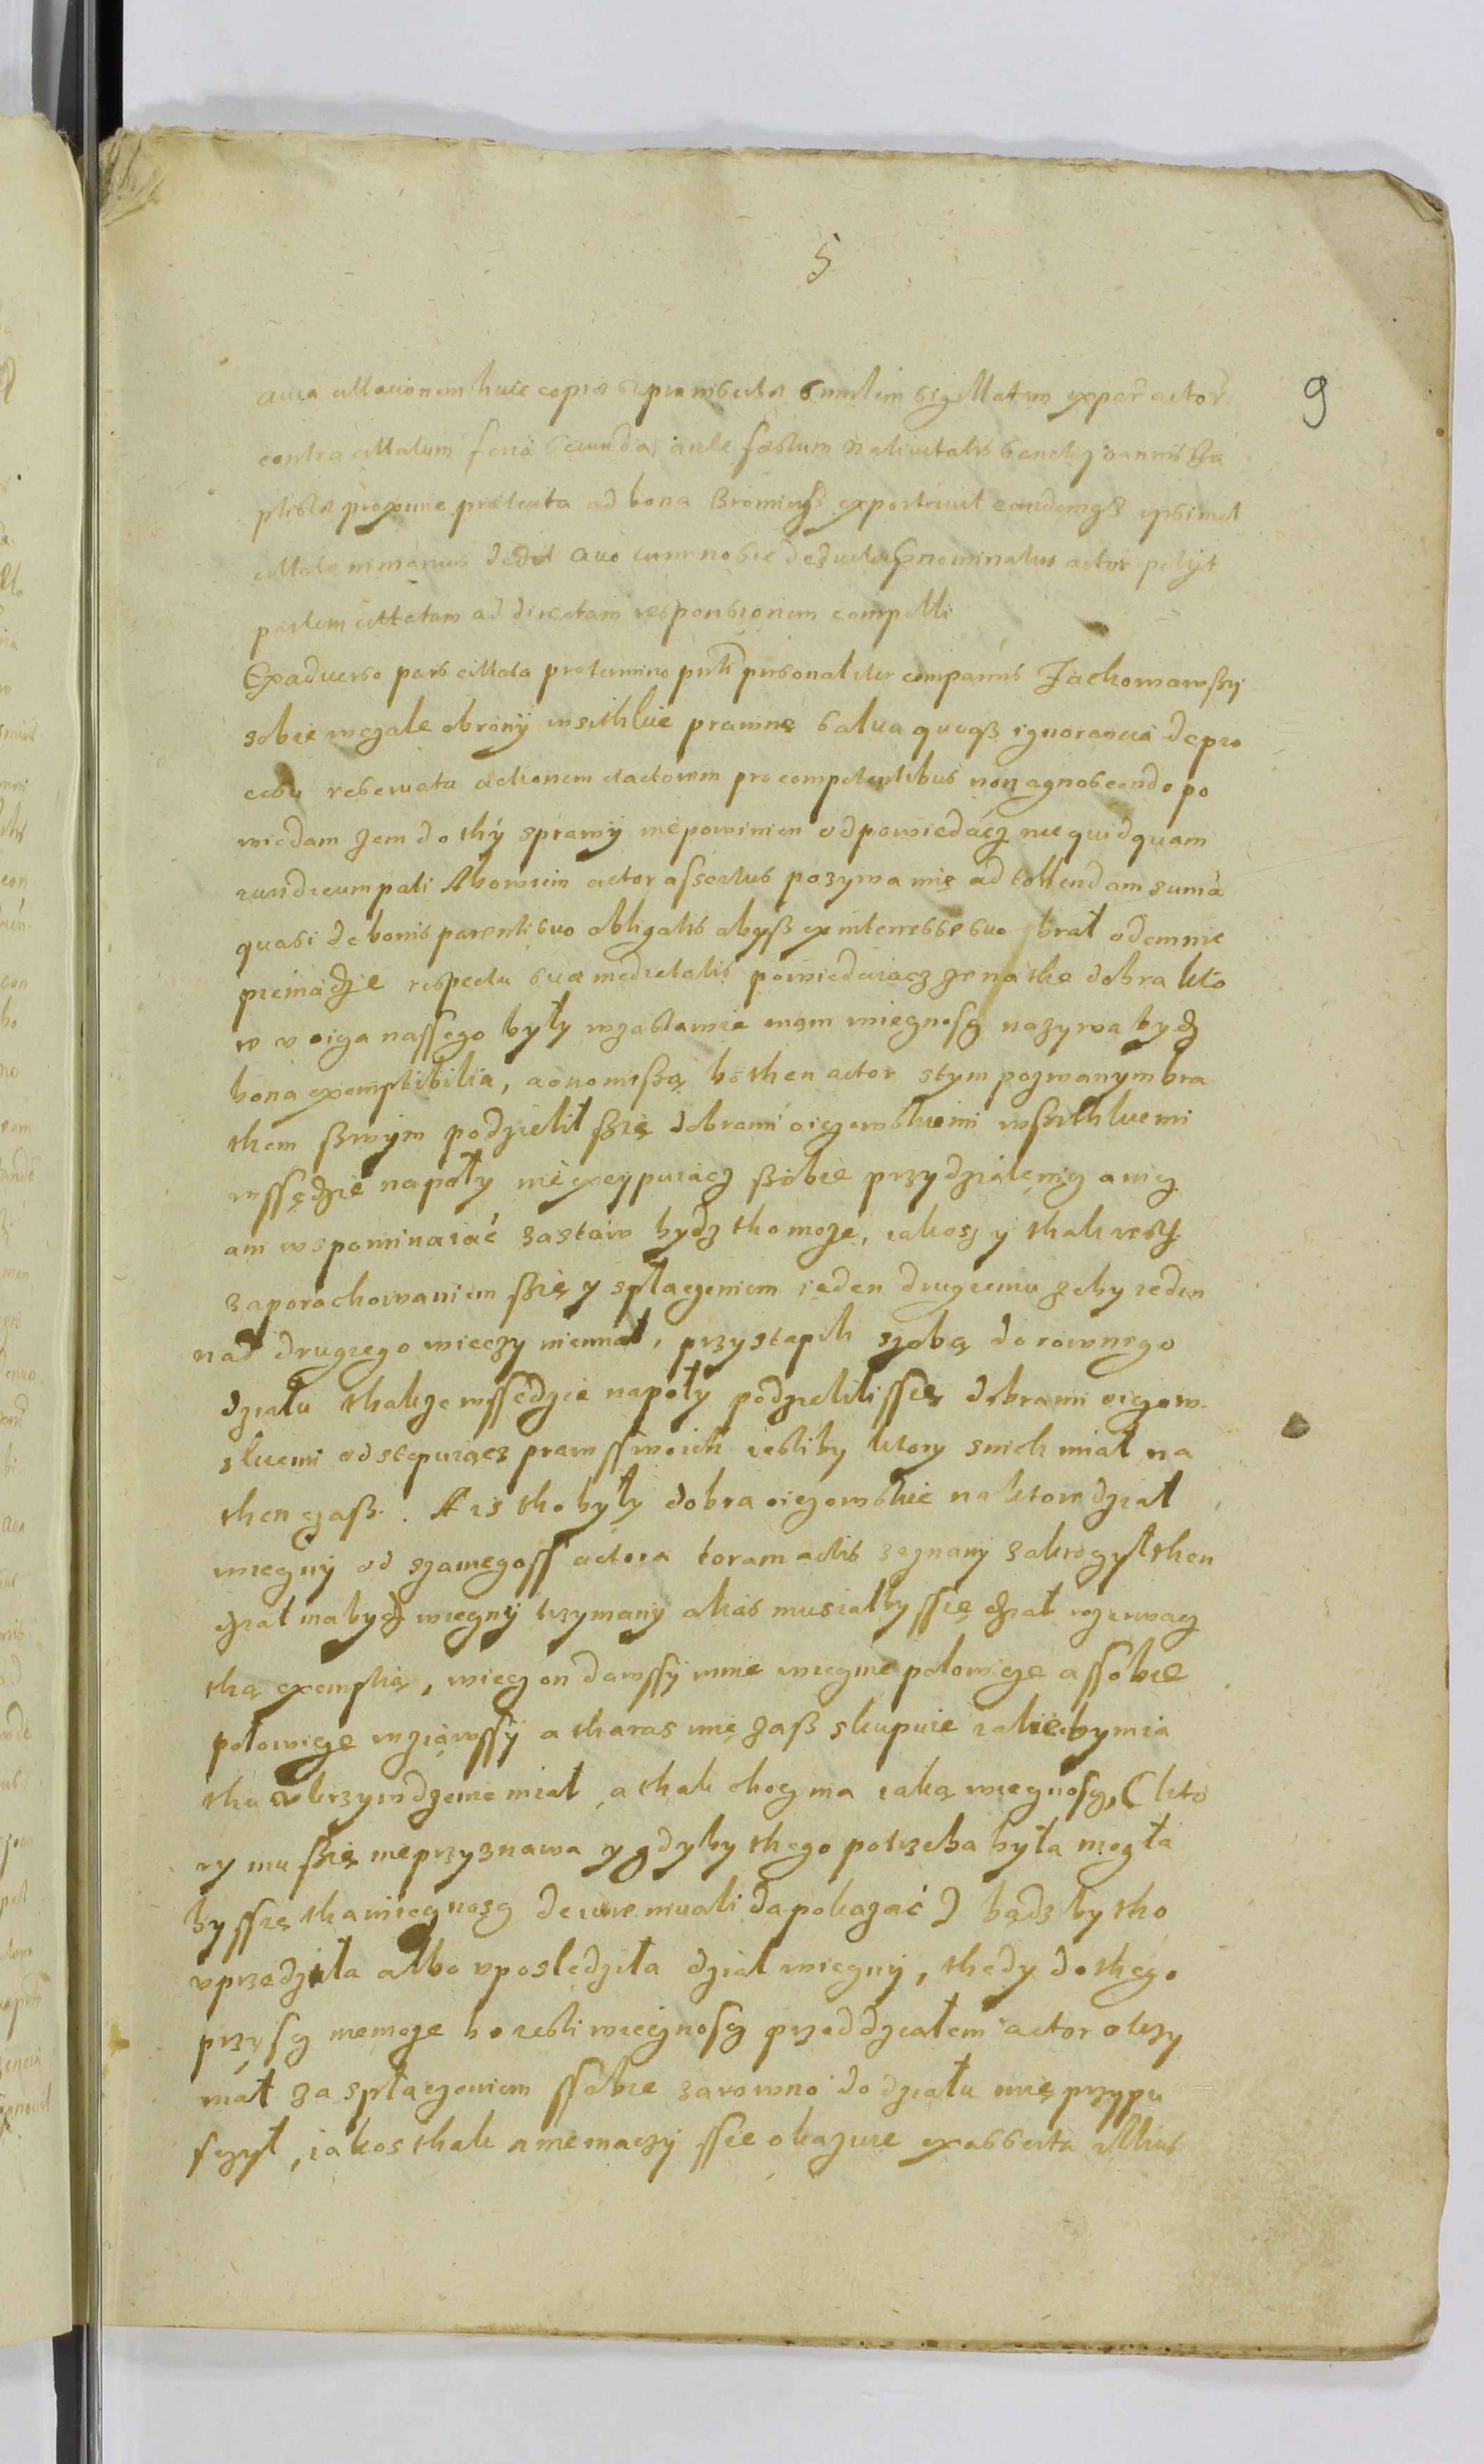 5
9
citationem huic copiæ similem sigillatam ex par actor
contra citatum feria secunda ante festum Natiuitatis sancti Joannis Ba
ptistæ proxime præterita ad bona exportauit eandemqz ipsimet
in manus dedit actor petijt
partem citatam ad directam responsionem compelli
Ex aduerso pars citata pro termino personaliter comparens Zachowawssy
sobie wczale obrony wsithkie prawne salua quoqz ignorancia de pro
cessu reseruata actionem et actorem pro competentibus non agnoscendo po
wiedam zem do thÿ sprawÿ niepowinien odpowiedacz nec quidquam
iuridicum pati Abowiem actor assertus pozywa mię ad tollendam sumā
quasi de bonis parenti suo obligatis abyß ex interresse suo brał odemnie
pieniądze respectu suæ medietatis powieduiacz ze na the dobra kto
re v oicza nassego były wzastawie mam wiecznoscz nazywa bydz
bona exemptibilia, a bo then actor stym pozwanym bra
them swym podzielił ssię dobrami oiczowskiemi wssithkiemi
wssędzie napoły nie excypuiącz ssobie przy dzialę nicz a nicz
ani wspominaiąć zastaw bydz tho moze, iakosz y thak iest
zaporachowaniem ssię y spłaczeniem ieden drugiemu zeby ieden
nad drugiego wieczy niemiał, przystapili szobą do rownego
działu thakze wssędzie napoły podzielili ssię dobrami oiczow
skiemi odstepuiącz praw sswoich iesliby ktory snich miał na
then czaß. A iz tho były dobra oiczowskie na ktore dział
wieczny od szamegoss actora coram actis zeznany zakroczył then
dział ma bydz wieczny trzymany alias musiałby ssię dział wzruwacz
thą exemptią, wiecz on dawssÿ mnie wieczne polowicze a ssobie
polowicze wziąwssÿ a tharas mię zaß skupuie iakiebymia
thu vkrzywdzenie miał, a thak chocz ma iaką wiecznoscz, (kto
ry mu ssię nieprzyznawa y gdyby thego potrzeba była mogła
by ssię tha wiecznoscz de iure inualida pokazać) bądz by tho
vprzedziła albo vposledziła dział wieczny, thedy do thego
przyscz niemoze bo iesli wiecznoscz przed działem actor otrzy
mał za spłaczeniem ssobie zarowno do działu mię przypu
sczył, iakosthak a nienaczÿ ssie okazuie ex asserta illius